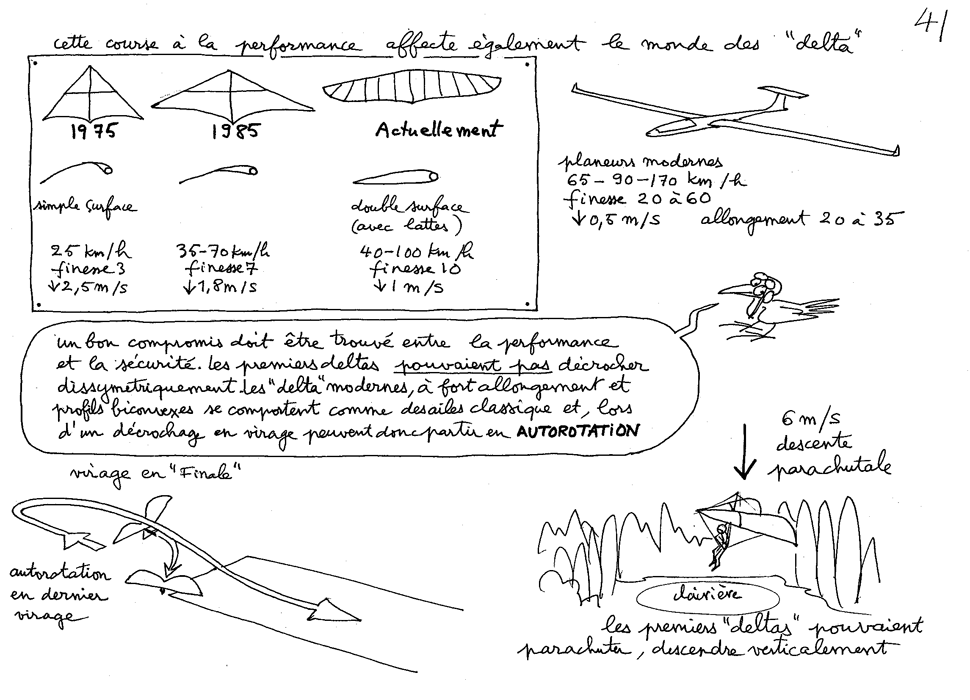 41
cette course à la performance affecte également le monde des "delta"
1975
1985
Actuellement
simple surface
double surface
(avec lattes)
25 km/h
finesse 3
↓2,5 m/s
35-70 km/h
finesse 7
↓1,8 m/s
40-100 km/h
finesse 10
↓1 m/s
planeurs modernes
65-90-170 km/h
finesse 20 à 60
↓0,5 m/s allongement 20 à 35
un bon compromis doit être trouvé entre la performance
et la sécurité. les premiers deltas pouvaient pas décrocher
dissymétriquement. les "delta" modernes, à fort allongement et
profils biconvexes se comportent comme des ailes classique et, lors
d'un décrochag en virage peuvent donc partir en AUTOROTATION
virage en "Finale"
autorotation
en dernier
virage
6 m/s
descente
parachutale
clairière
les premiers "deltas" pouvaient
parachuter, descendre verticalement